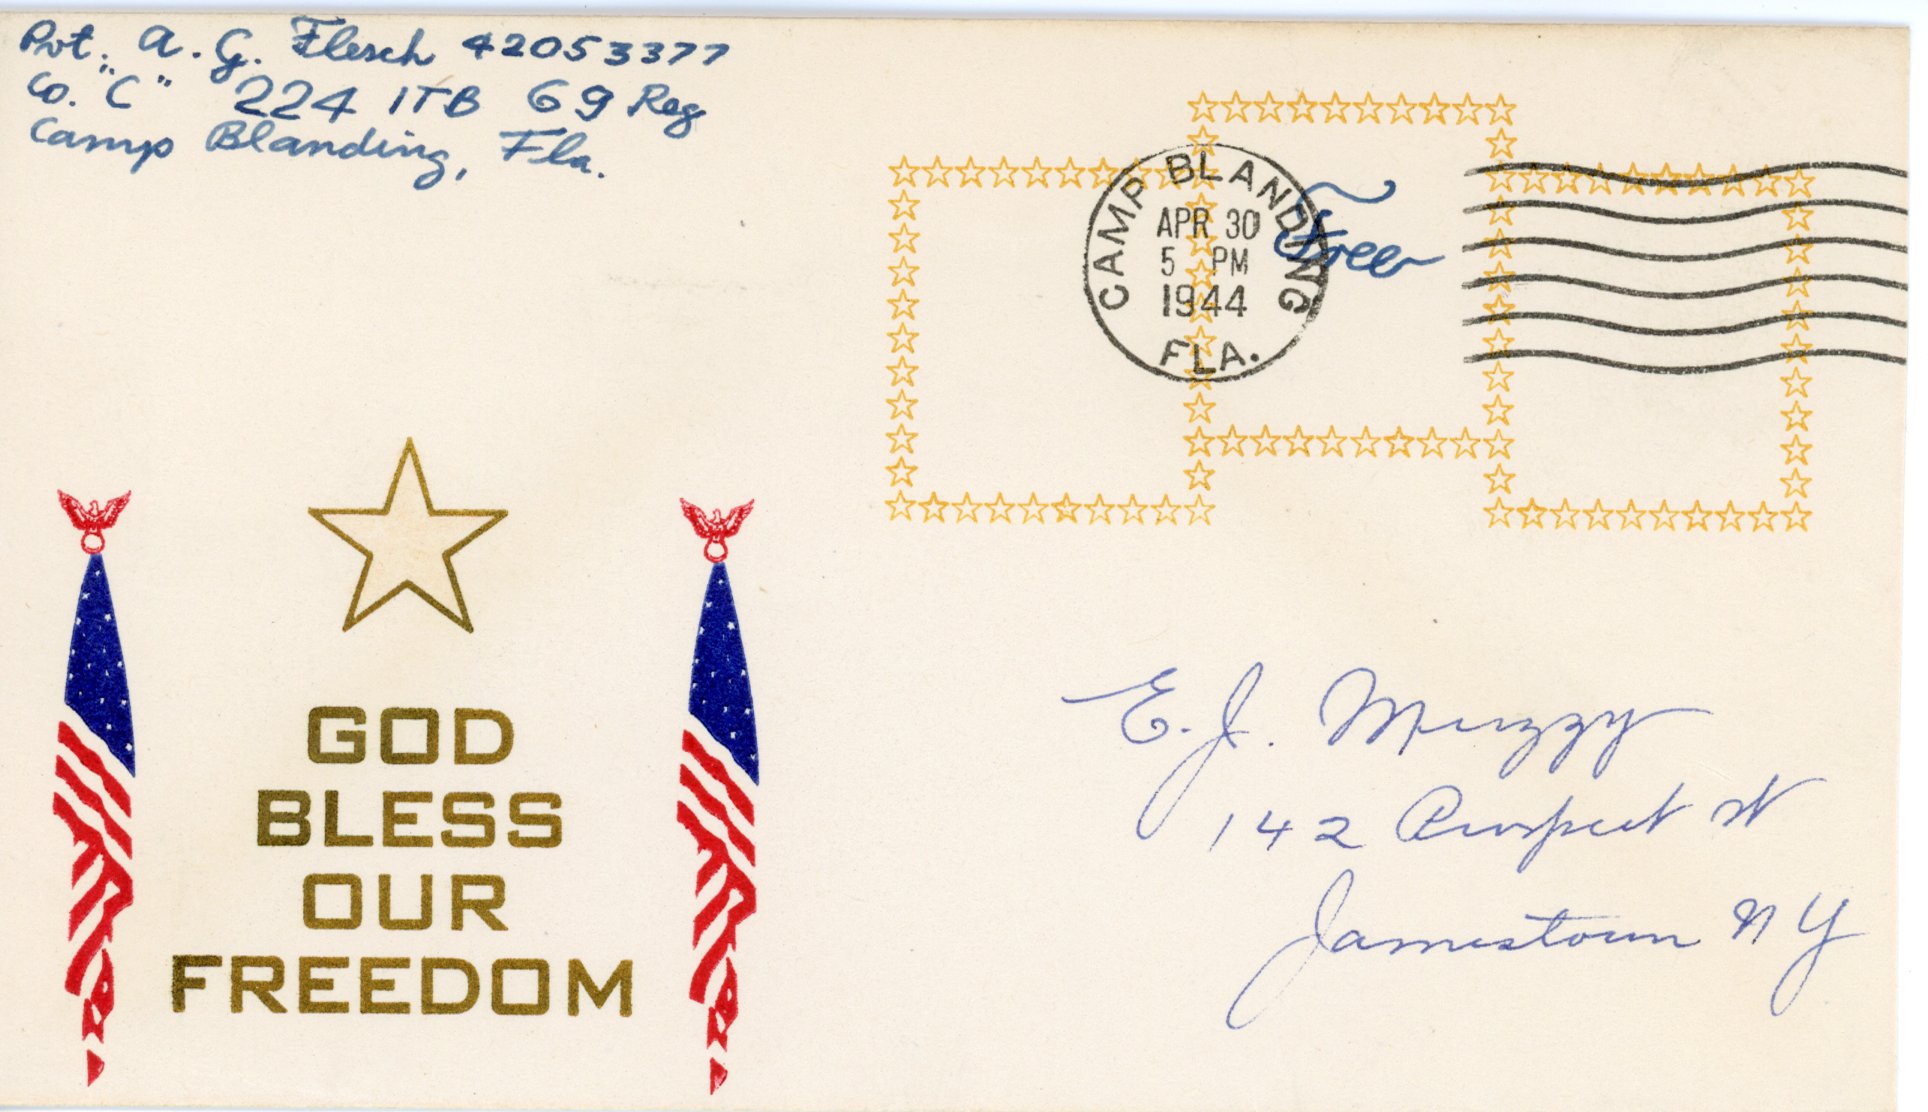 Pvt. A. G. Flesch 42053377
Co. "C" 224 ITB 69 Reg
Camp Blanding, Fla.
CAMP BLANDING
APR 30
5 PM
1944
FLA.
Free
GOD
BLESS
OUR
FREEDOM
E. J. Muzzy
142 Prospect St
Jamestown NY